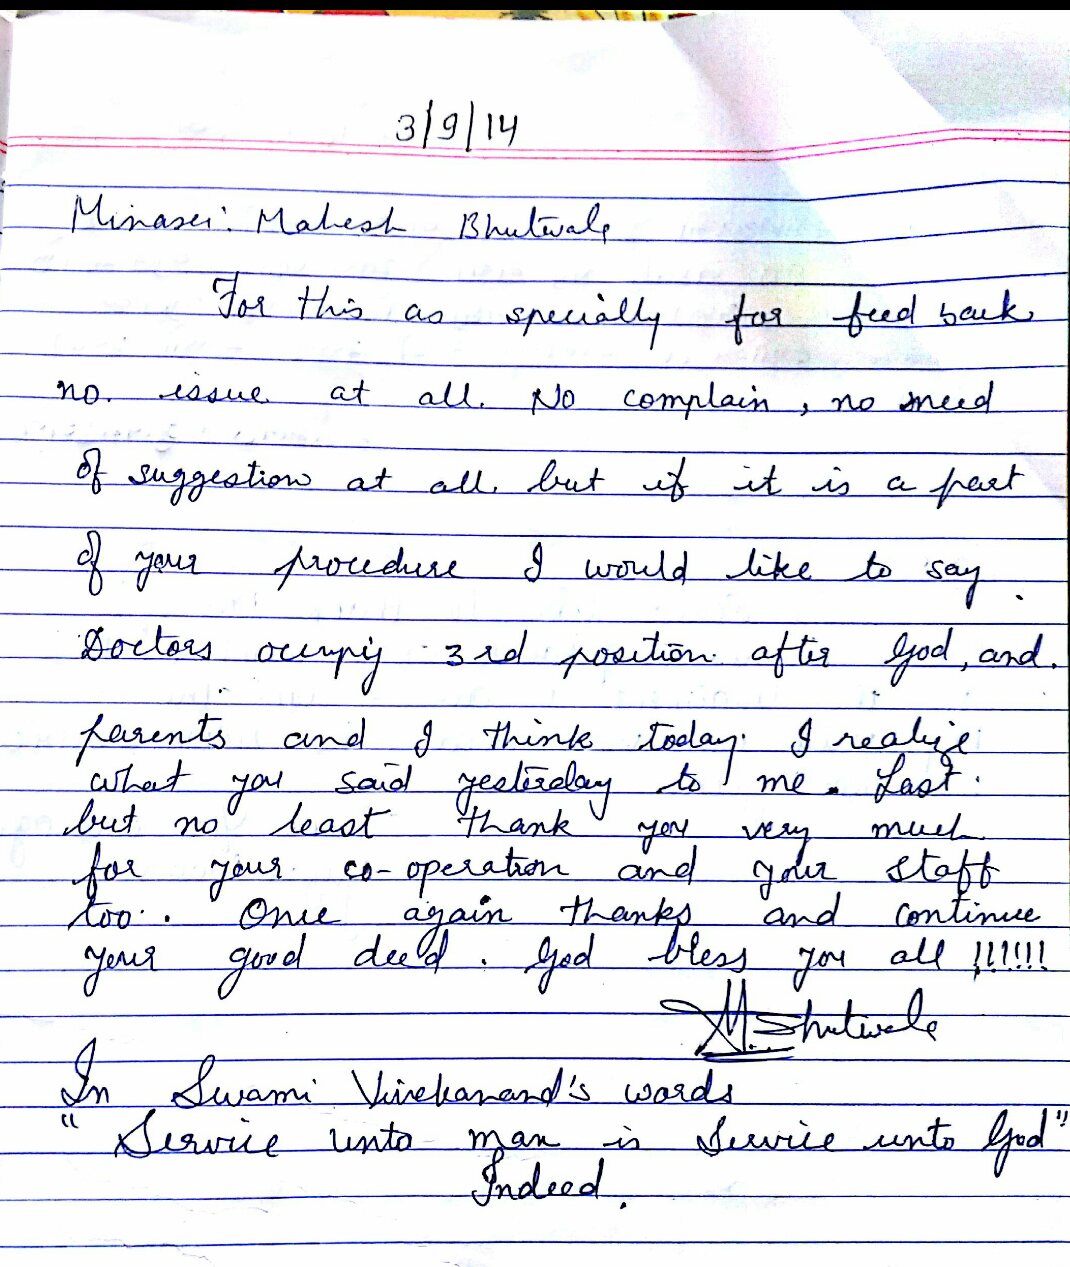 3/9/14
Minaxi Mahesh Bhutwala
For this as specially for feed back
no issue at all. No complain, no need
of suggestion at all. but if it is a part
of your procedure I would like to say.
Doctors occupy 3rd position after God, and
parents and I think today I realize
what you said yesterday to me. Last
but no least thank you very much
for your co-operation and your staff
too. Once again thanks and continue
your good deed. God bless you all !!!!!!
M. Bhutwala
In Swami Vivekanand's words
"Service unto man is Service unto God"
Indeed.